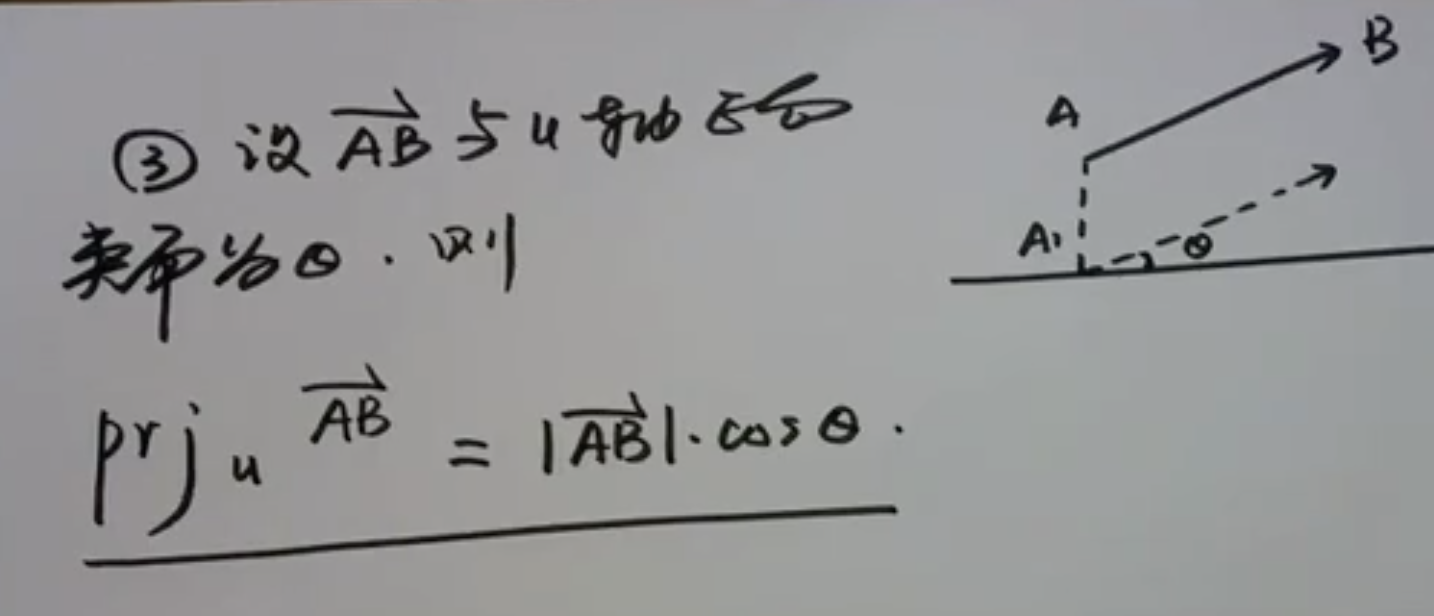 ③ 设 \overrightarrow{AB} 与 u 轴正向
夹角为θ. 则
prj_u \overrightarrow{AB} = |\overrightarrow{AB}|·cosθ.
B
A
A'
θ